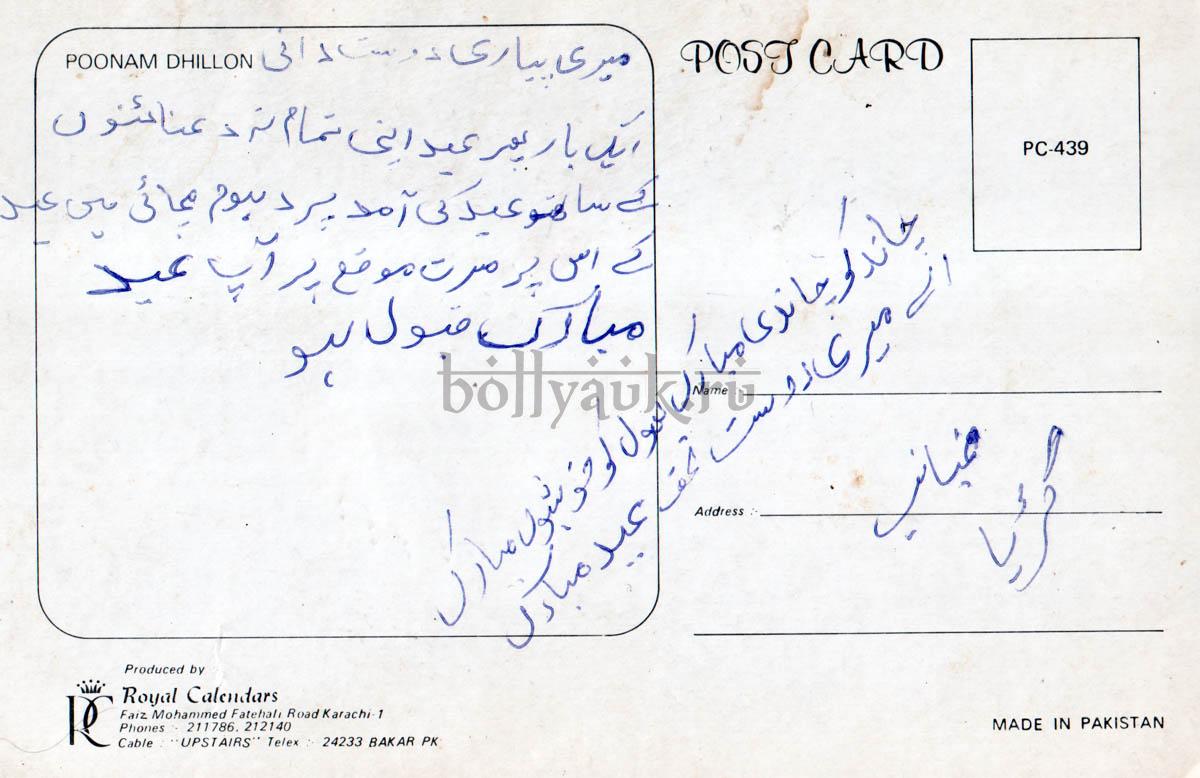 POONAM DHILLON
میری پیاری دوست رانی
ایک بار پھر عید اپنی تمام تر رعنائیوں
کے ساتھ عید کی آمد پر دھوم مچائی ہیں عید
کے اس پر مسرت موقع پر آپ عید
مبارک قبول ہو
چاند کو چاندی مبارک پھول کو خوشبو مبارک
اے میری دوست تحفہ عید مبارک
POST CARD
PC-439
Name :-
Address :-
منجانب
گڑیا
Produced by
Royal Calendars
Faiz Mohammed Fatehali Road Karachi-1
Phones :- 211786, 212140
Cable : "UPSTAIRS" Telex :- 24233 BAKAR PK
RC
MADE IN PAKISTAN
bollyauk.ru